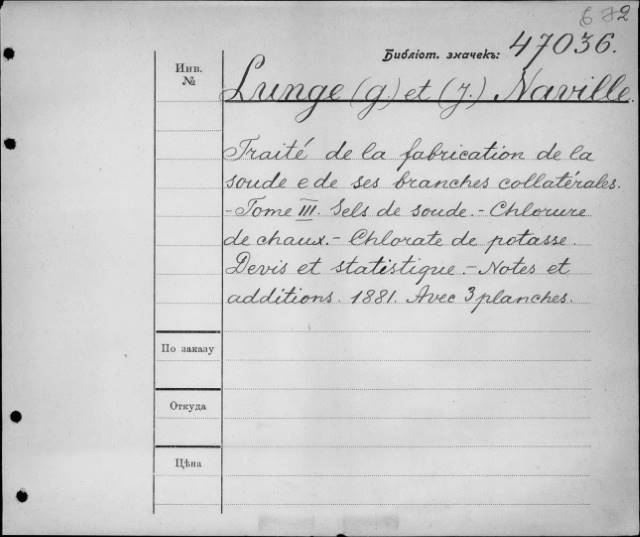 672
Библіот. значекъ: 47036.
Инв.
№
Lunge (G.) et (J.) Naville.
Traité de la fabrication de la
soude e de ses branches collatérales.
- Tome III. Sels de soude. - Chlorure
de chaux. - Chlorate de potasse.
Devis et statistique. - Notes et
additions. 1881. Avec 3 planches.
По заказу
Откуда
Цѣна